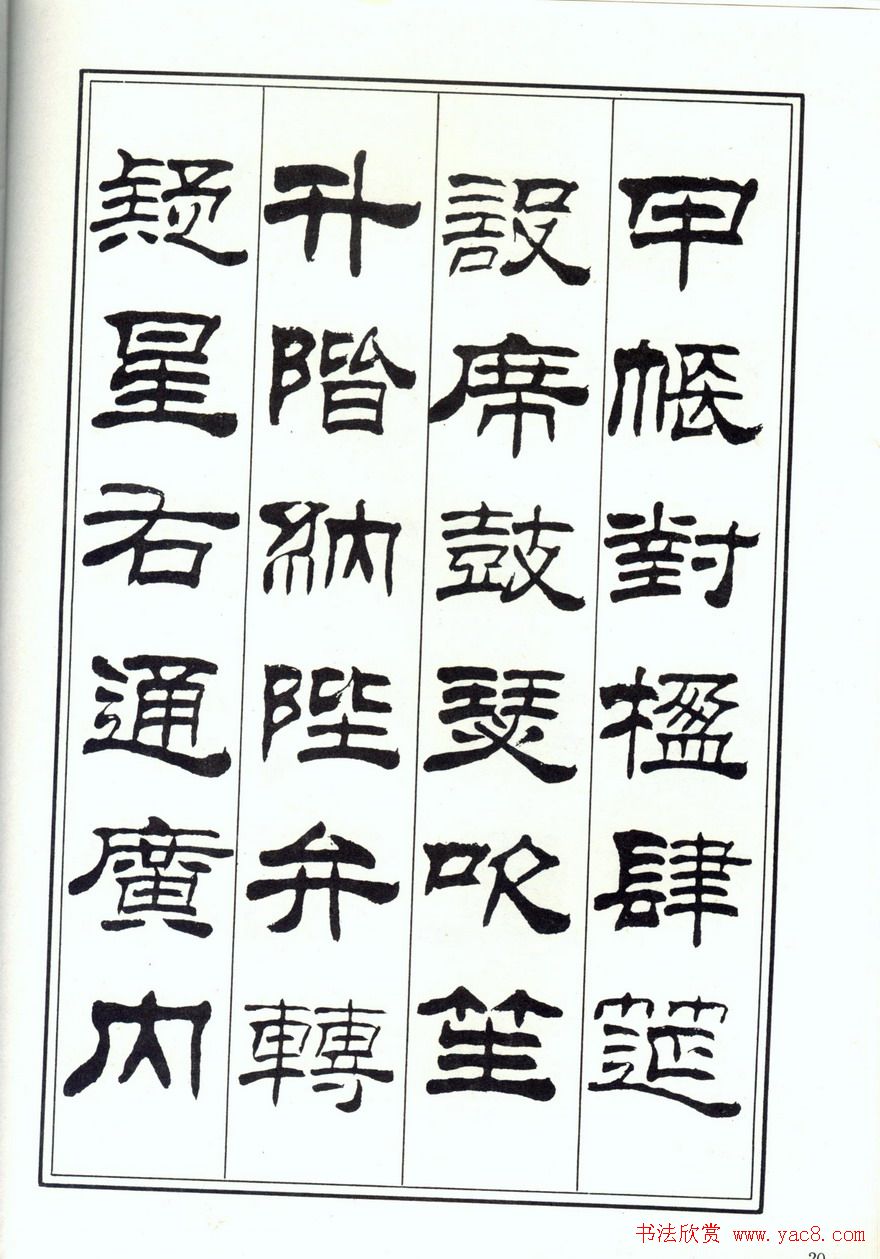 甲帳對楹肆筵
設席鼓瑟吹笙
升階納陛弁轉
疑星右通廣內
20
书法欣赏 www.yac8.com